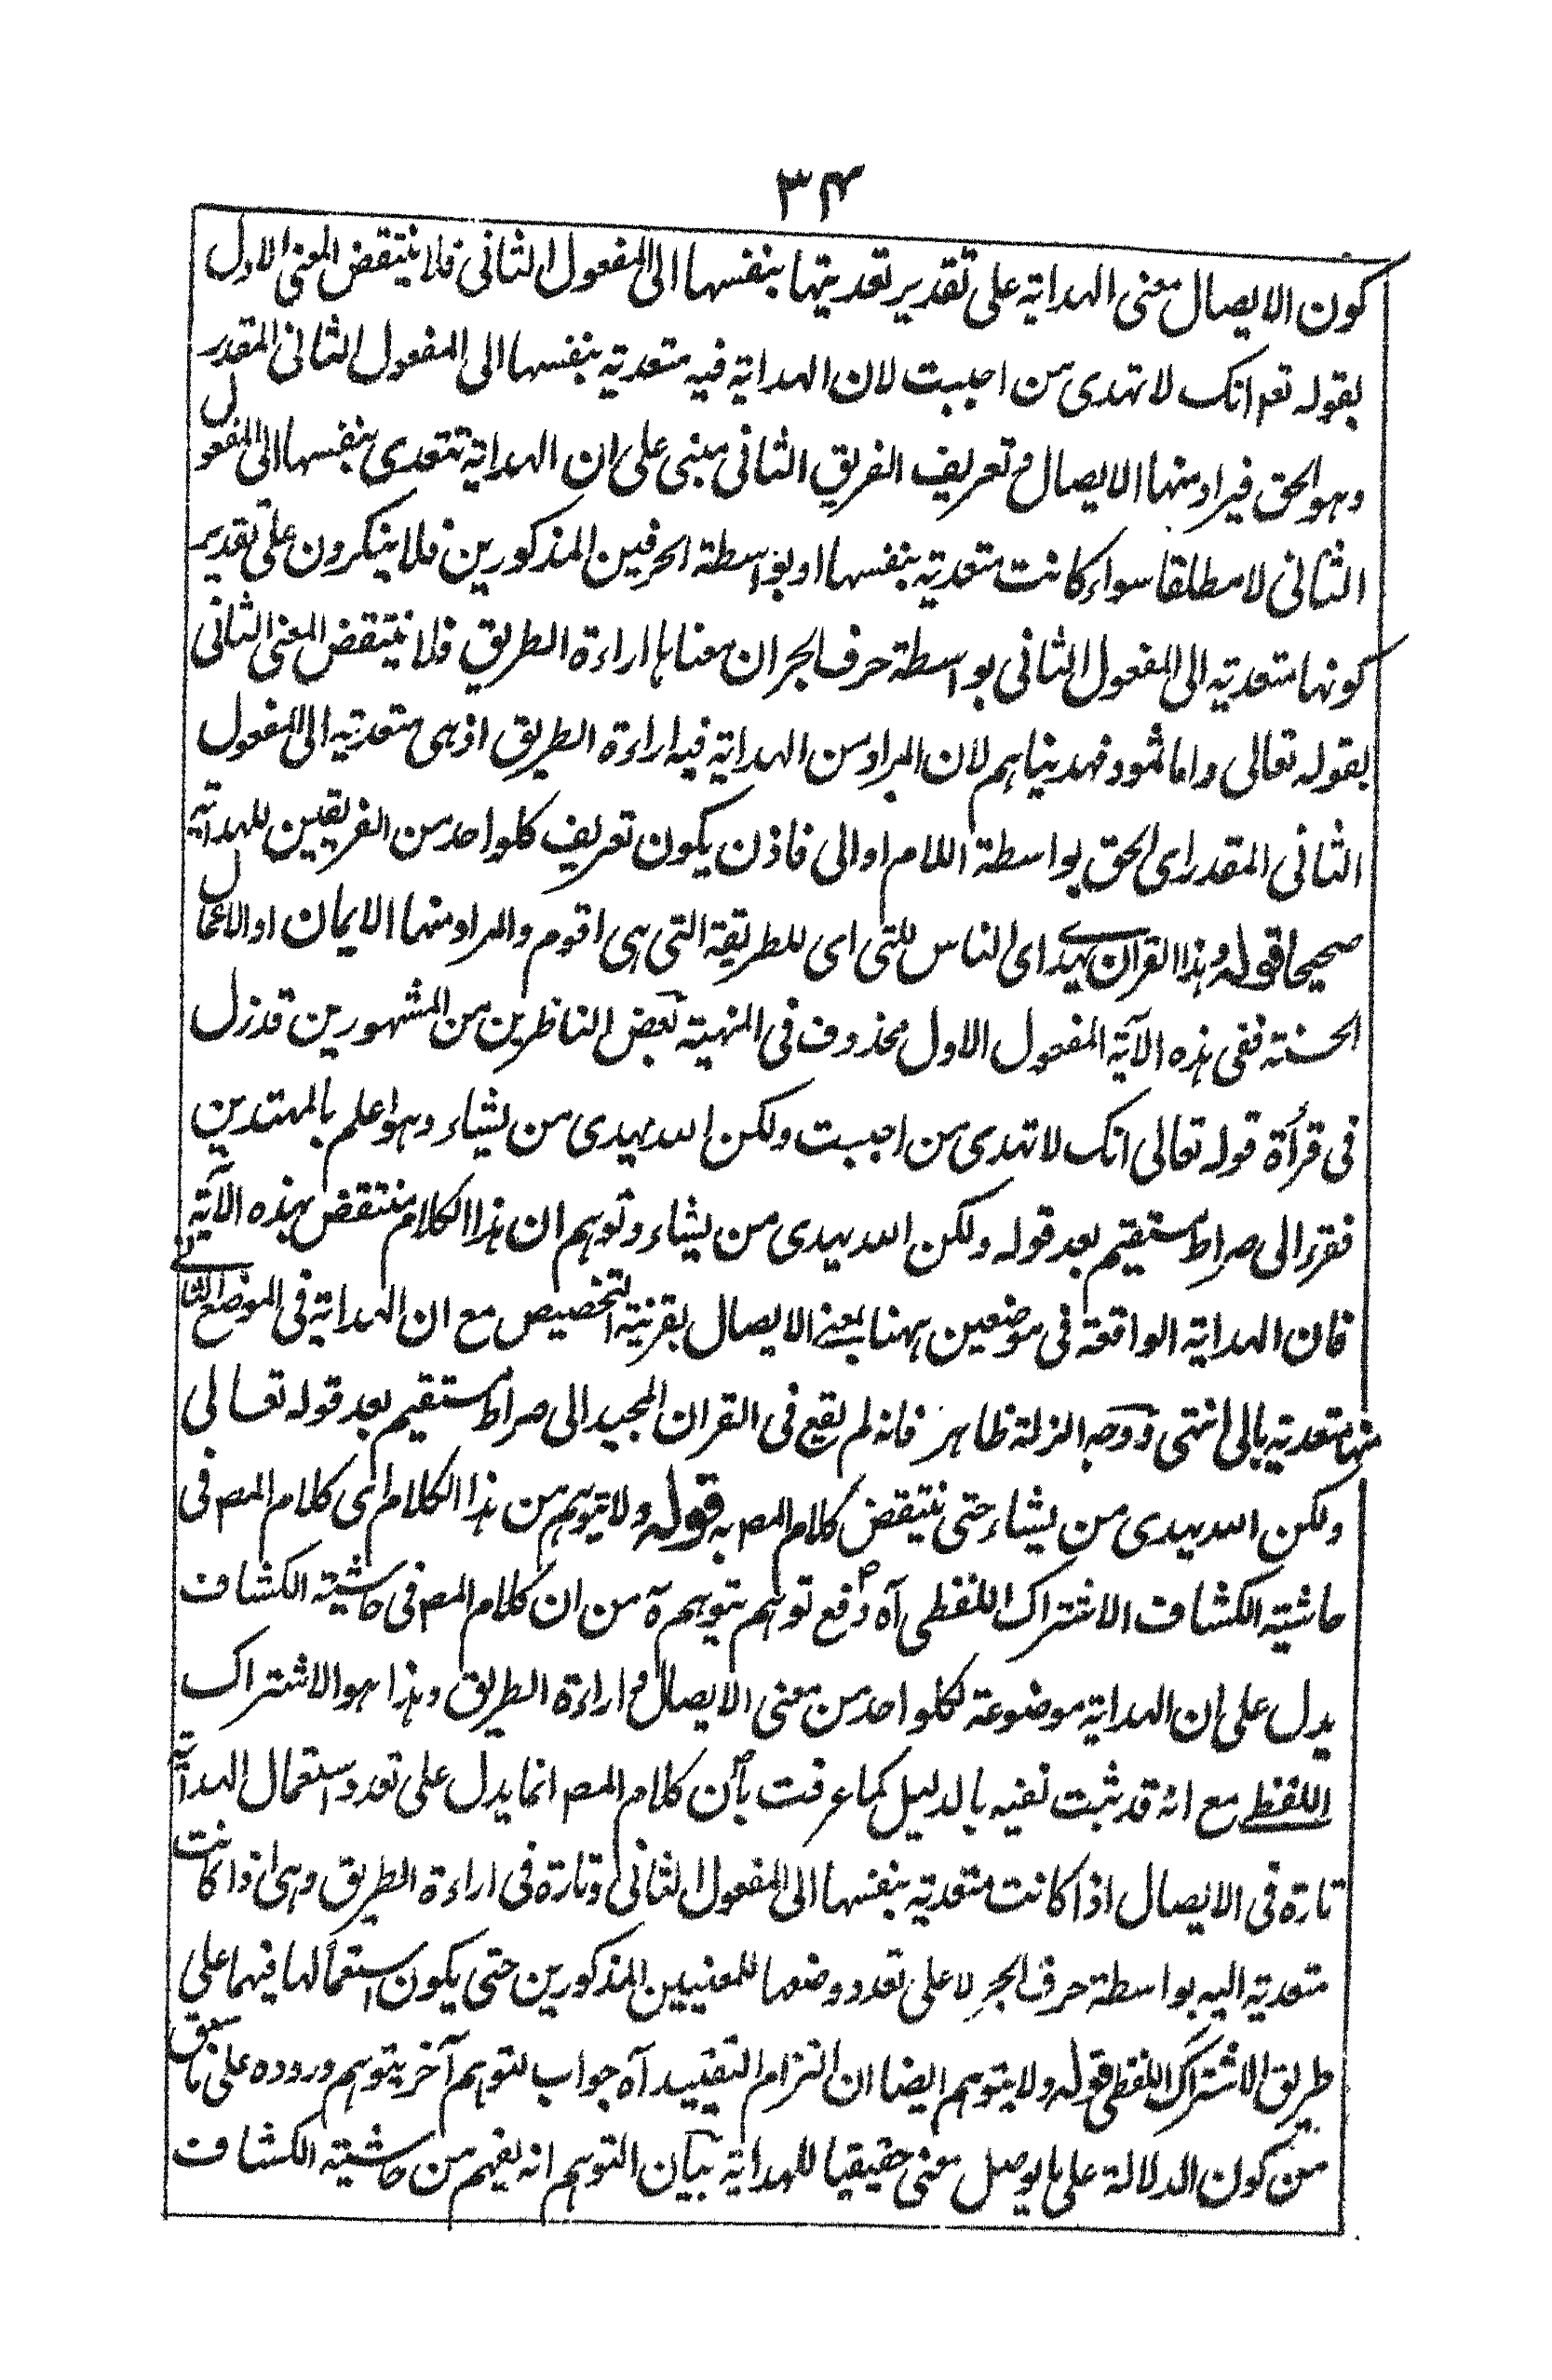 ٣۴
كون الايصال معنى الهداية على تقدير تعديتها بنفسها الى المفعول الثانى فلا ينتقض المعنى الاول
بقوله تعم انك لا تهدى من احببت لان الهداية فيه متعدية بنفسها الى المفعول الثانى المقدر
وهو الحق فيراد منها الايصال و تعريف الفريق الثانى مبنى على ان الهداية تتعدى بنفسها الى المفعول
الثانى لا مطلقا سواء كانت متعدية بنفسها او بواسطة الحرفين المذكورين فلا ينكرون على تقدير
كونها متعدية الى المفعول الثانى بواسطة حرف الجر ان معناها اراءة الطريق فلا ينتقض المعنى الثانى
بقوله تعالى واما ثمود فهديناهم لان المراد من الهداية فيه اراءة الطريق اذ هى متعدية الى المفعول
الثانى المقدر اى الحق بواسطة اللام او الى فاذن يكون تعريف كلواحد من الفريقين للهداية
صحيحا قوله وهذا القران يهدى اى الناس للتى اى للطريقة التى هى اقوم والمراد منها الايمان او الاعمال
الحسنة ففى هذه الآية المفعول الاول محذوف فى المنهية بعض الناظرين من المشهورين قد زل
فى قرأة قوله تعالى انك لا تهدى من احببت ولكن الله يهدى من يشاء وهو اعلم بالمهتدين
فقرء الى صراط مستقيم بعد قوله ولكن الله يهدى من يشاء وتوهم ان هذا الكلام منتقض بهذه الآية
فان الهداية الواقعة فى موضعين ههنا بمعنى الايصال بقرينة التخصيص مع ان الهداية فى الموضع الثانى
منها متعدية بالى انتهى ووجه الزلة ظاهر فانه لم يقع فى القران المجيد الى صراط مستقيم بعد قوله تعالى
ولكن الله يهدى من يشاء حتى ينتقض كلام المص به قوله ولا يتوهم من هذا الكلام اى كلام المص فى
حاشية الكشاف الاشتراك اللفظى آه دفع توهم يتوهم ة من ان كلام المص فى حاشية الكشاف
يدل على ان الهداية موضوعة لكلواحد من معنى الايصال و اراءة الطريق وهذا هو الاشتراك
اللفظى مع انه قد ثبت نفيه بالدليل كما عرفت بأن كلام المص انما يدل على تعدد استعمال الهداية
تارة فى الايصال اذا كانت متعدية بنفسها الى المفعول الثانى وتارة فى اراءة الطريق وهى اذا كانت
متعدية اليه بواسطة حرف الجر لا على تعدد وضعها للمعنيين المذكورين حتى يكون استعمالها فيهما على
طريق الاشتراك اللفظى قوله ولا يتوهم ايضا ان التزام التقييد آه جواب لتوهم آخر يتوهم وروده على ما سبق
من كون الدلالة على ما يوصل معنى حقيقيا للهداية بيان التوهم انه يفهم من حاشية الكشاف